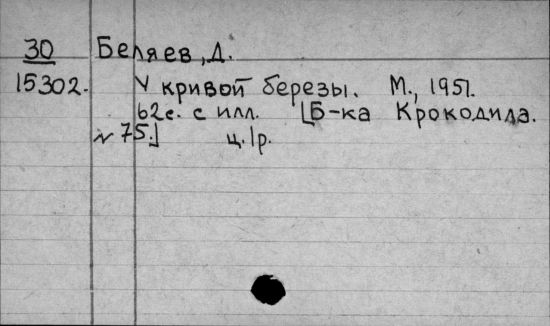 30 Беляев, Д.
15302. У кривой березы. М., 1951.
62с. с илл. [Б-ка Крокодила.
№ 75.] ц. 1р.